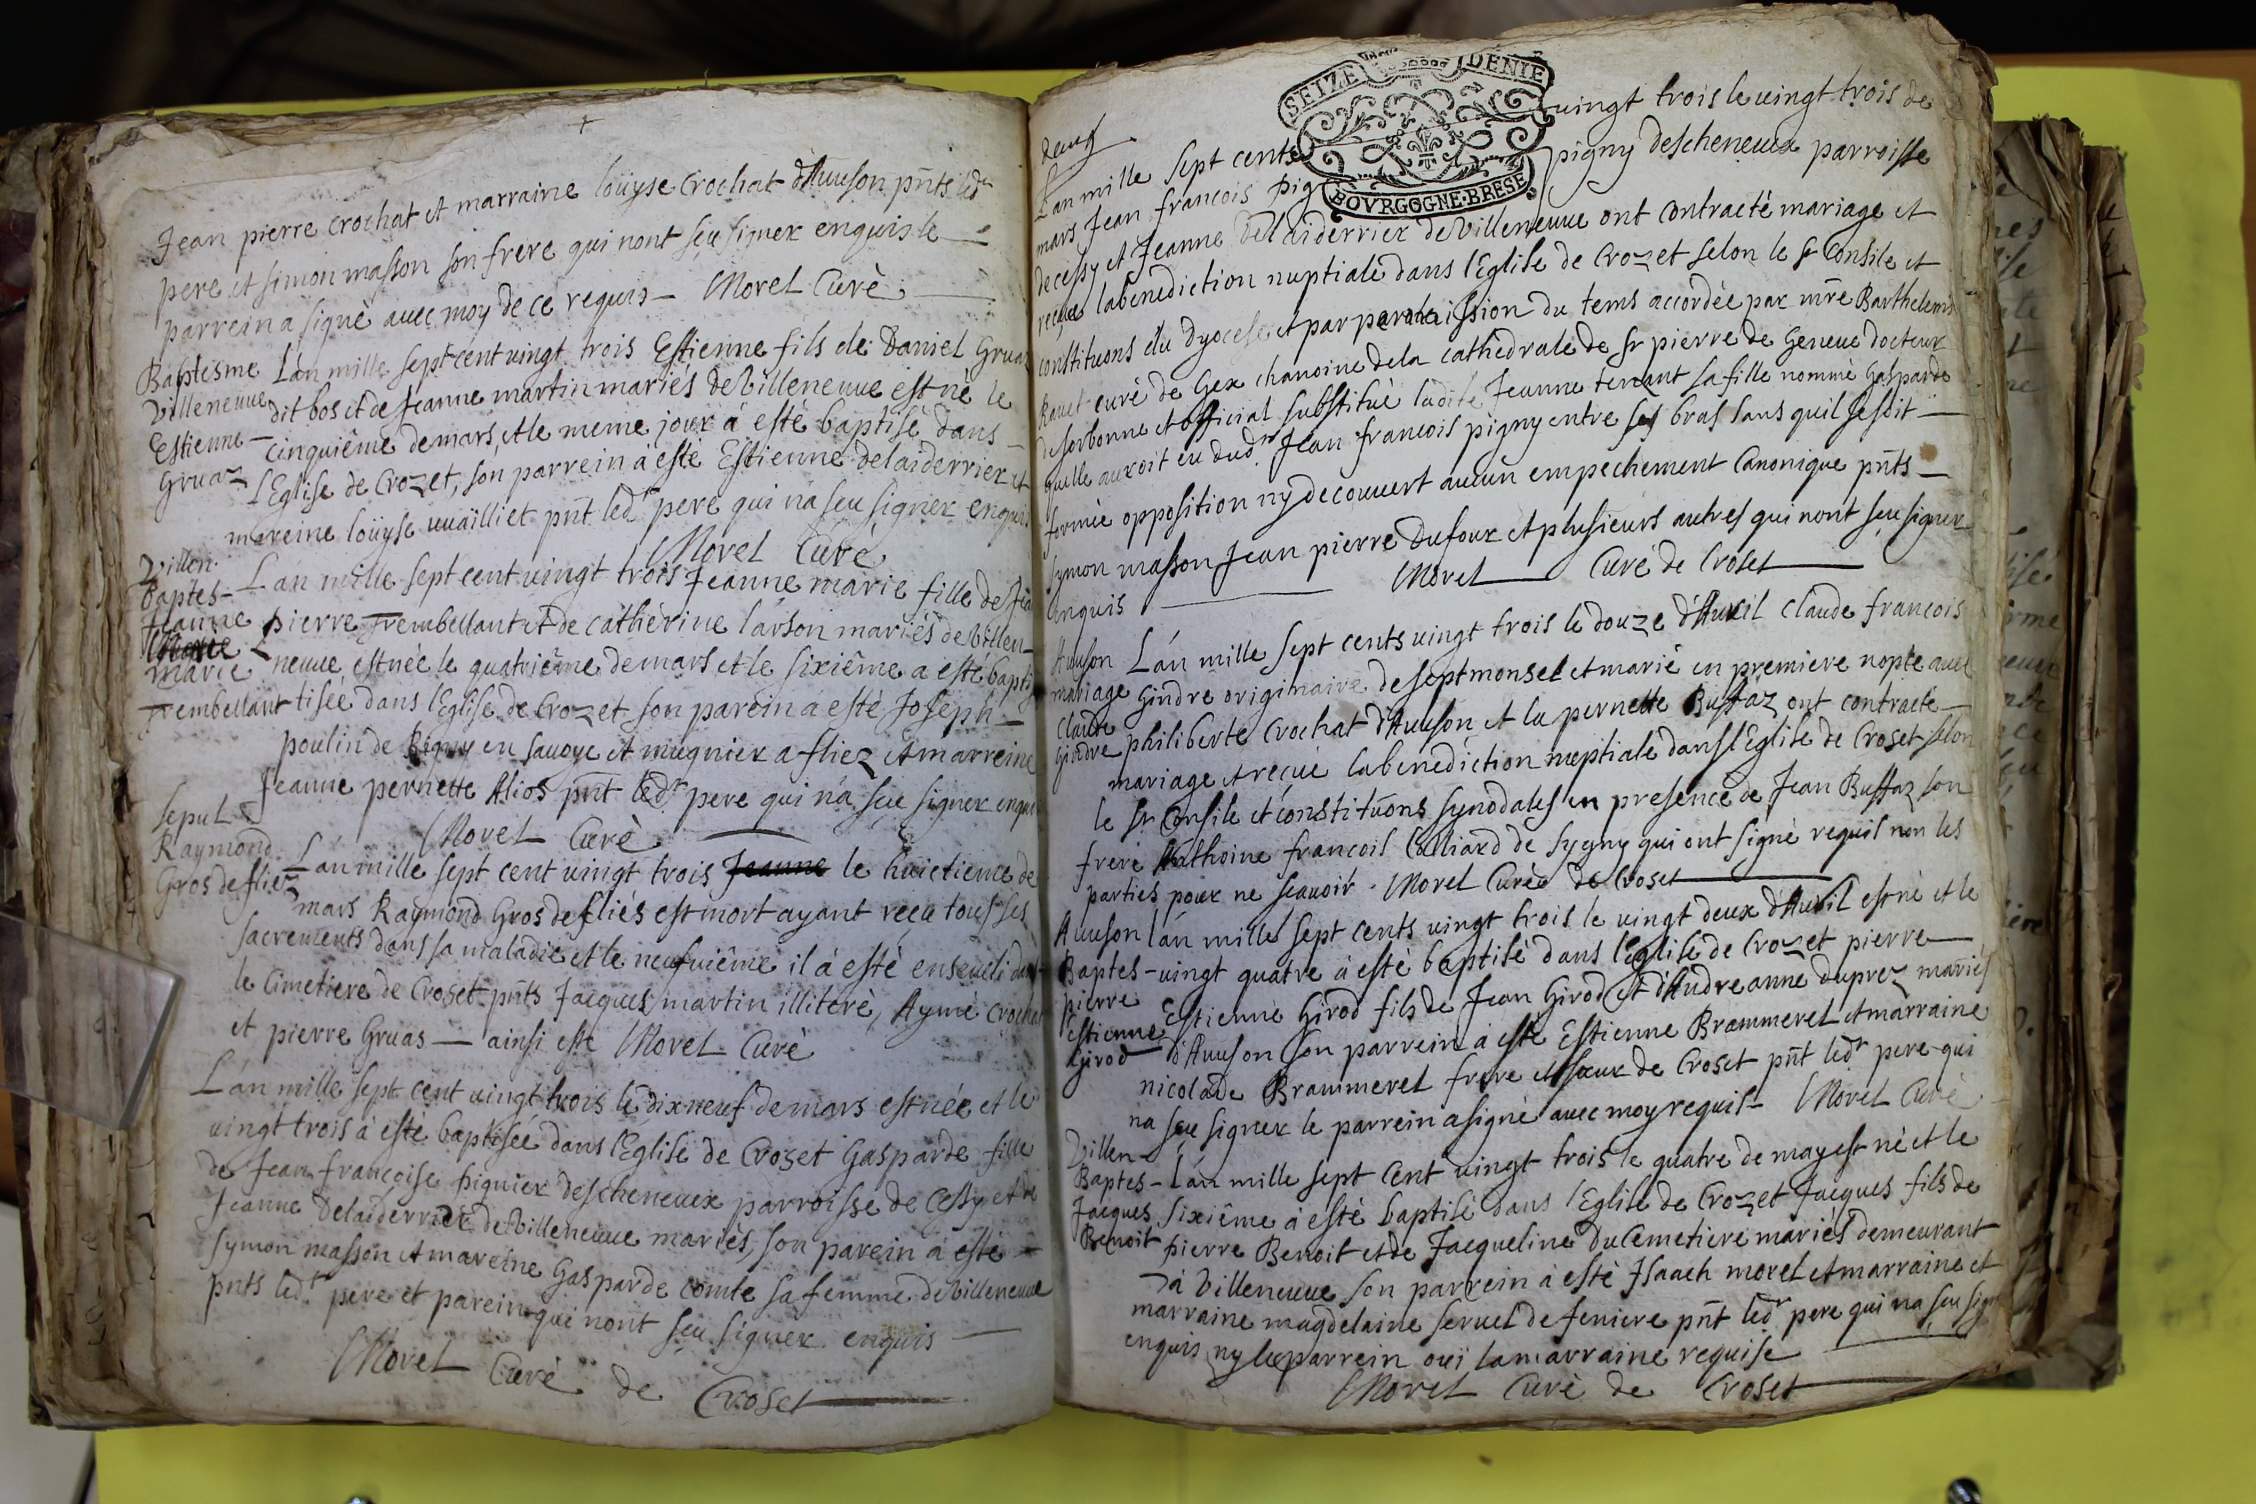 Jean pierre Crochat et marraine loüyse Crochat d'Avuson pñts led.r
pere et simon masson son frere qui nont sçu signer enquis le
parrein a signé avec moy de ce requis — Morel Curé
Baptesme L'an mille sept cent vingt trois Estienne fils de Daniel Gruaz
Villeneuve dit bos et de Jeanne martin mariés de Villeneuve est né le
Estienne — cinquiême de mars, et le meme jour á esté baptisé dans
Gruaz l'Eglise de Crozet, son parrein á esté Estienne delaiderrier et
mareine loüyse vuailliet pñt led.r pere qui na sçu signer enquis
Morel Curé
Villen.
Baptes — L'an mille sept cent vingt trois Jeanne marie fille de Jea
Jeanne pierre Trembellant et de Catherine larson mariés de Villen-
marie neuve est née le quatriême de mars et le sixiême a esté bapti
Trembellant tisée dans l'Eglise de Crozet son parein a esté Joseph
poulin de en savoye et mugnier a fliez et marreine
Jeanne pernette Alios pñt led.r pere qui ná sçu signer enquis
Morel Curé
Sepul
Raymond L'an mille sept cent vingt trois Jeanne le huictieme de
Gros de fliez mars Raymond Gros de fliés est mort ayant reçu tous ses
sacrements dans sa maladie et le neufviême il á esté enseveli dans
le Cimetiere de Croset pñts Jacques martin illiteré, Aymé Crochat
et pierre Gruas — ainsi este Morel Curé
L'an mille sept cent vingt trois le dixneuf de mars est née et le
vingt trois á esté baptisée dans l'Eglise de Crozet Gasparde fille
de Jean françoise pignier descheneuex parroisse de Cessy et de
Jeanne Delaiderrier de Villeneuve mariés, son parein á esté
symon masson et mareine Gasparde comte sa femme de Villeneuve
pñts led.r pere et parein qui nont sçu signer enquis —
Morel Curé de Croset
SEIZE DENIE
BOVRGOGNE·BRESE
L'an mille sept cents vingt trois le vingt trois de
mars Jean francois pig pigny descheneuex parroisse
decessy et Jeanne Delaiderrier de Villeneuve ont contracté mariage et
reçue la benediction nuptiale dans l'Eglise de Crozet selon le sr Consile et
constituons du Dyocese et par permission du tems accordée par mre Barthelemi
curé de Gex chanoine de la cathedrale de sr pierre de Geneve docteur
de sorbonne et official substitué ladite Jeanne tenant sa fille nommé Gasparde
quelle auroit eu dud.r Jean francois pigny entre ses bras sans quil se soit —
formée opposition ny decouvert aucun empechement Canonique pñts —
symon masson Jean pierre Dufour et plusieurs autres qui nont sçu signer
enquis Morel Curé de Croset
Avuson L'an mille sept cents vingt trois le douze d'Avril Claude francois
mariage Gindre originaire de septmonsel et marié en premiere nopce avec
Claude philiberte Crochat d'Avuson et la pernette Buffaz ont contracté
Gindre mariage et reçue la benediction nuptiale dans l'Eglise de Croset selon
le sr Consile et constituons synodales en presence de Jean Buffaz son
frere Anthoine francois de sygny qui ont signé requis non les
parties pour ne scavoir. Morel Curé de Croset
Avuson l'an mille sept cents vingt trois le vingt deux d'Avril est né et le
Baptes — vingt quatre á esté baptisé dans l'Eglise de Crozet pierre
pierre Estienne Girod fils de Jean Girod et d'Andreanne duprez mariés
Estienne d'Avuson son parrein á esté Estienne Brammerel et marraine
Girod nicolade Brammerel frere et sœur de Croset pñt led.r pere qui
na sçu signer le parrein a signé avec moy requis — Morel Curé
Villen —
Baptes — L'an mille sept cent vingt trois le quatre de may est né et le
Jacques sixiême á esté baptisé dans l'Eglise de Crozet Jacques fils de
Benoit pierre Benoit et de Jacqueline Ducemetiere mariés demeurant
á Villeneuve son parrein á esté Isaach morel et marraine et
marraine magdelaine servel de feniere pñt led.r pere qui na sçu sign
enquis ny le parrein ouï la marraine requise
Morel Curé de Croset